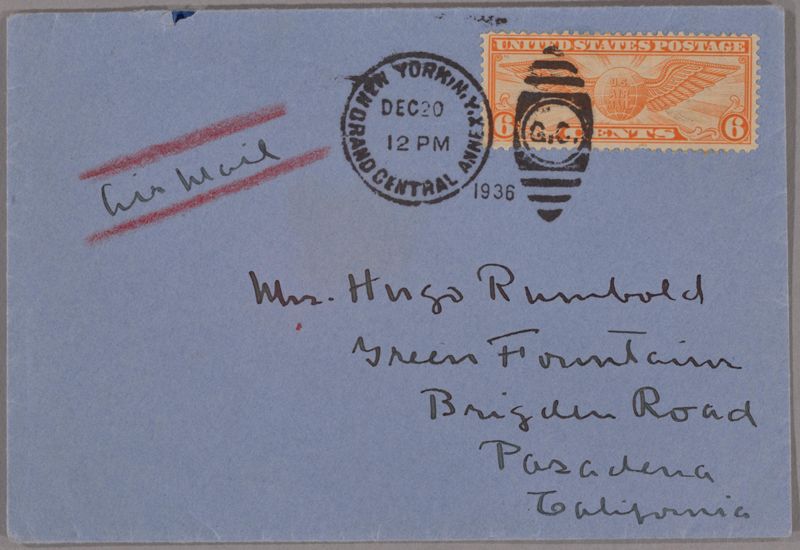 UNITED STATES POSTAGE
U.S.
AIR
MAIL
6 CENTS 6
NEW YORK, N.Y.
GRAND CENTRAL ANNEX
DEC 20
12 PM
1936
G.C.
Air Mail
Mrs. Hugo Rumbold
Green Fountain
Brigden Road
Pasadena
California